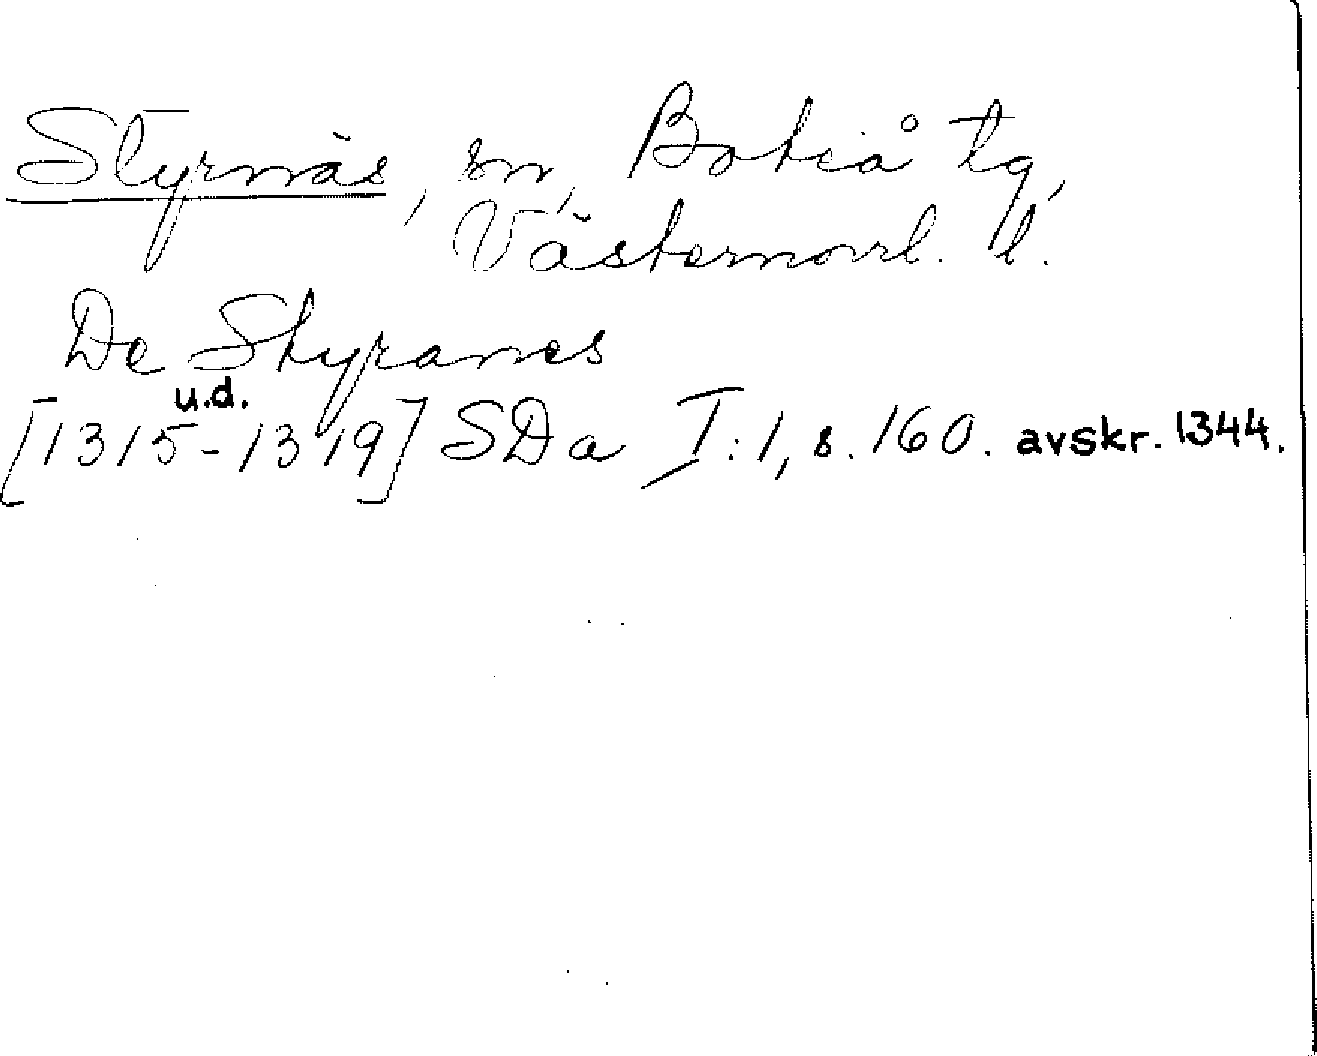 Styrnäs, sn, Boteå tg,
Västernorrl. l.
De Styranes
u.d.
[1315-1319] SDa I:1, s. 160. avskr. 1344.